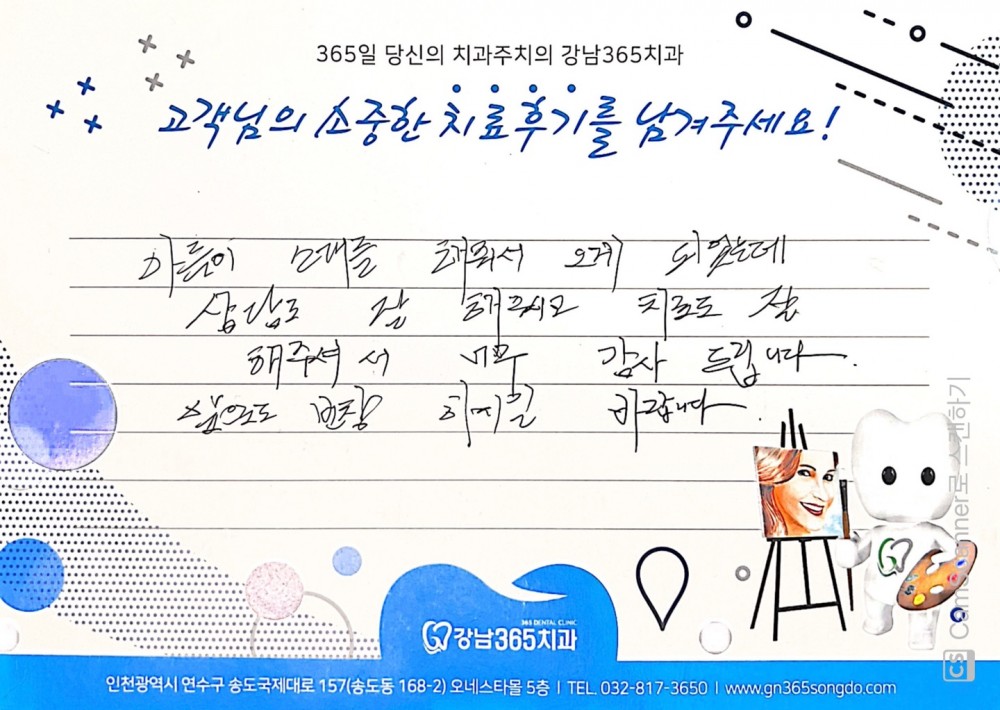 365일 당신의 치과주치의 강남365치과
고객님의 소중한 치료후기를 남겨주세요!
아름이 소개를 해줘서 오게 되었는데
상담도 잘 해주시고 치료도 잘
해주셔서 너무 감사 드립니다.
앞으로도 번창 하시길 바랍니다.
365 DENTAL CLINIC
강남365치과
인천광역시 연수구 송도국제대로 157(송도동 168-2) 오네스타몰 5층 | TEL. 032-817-3650 | www.gn365songdo.com
CS CamScanner로 스캔하기